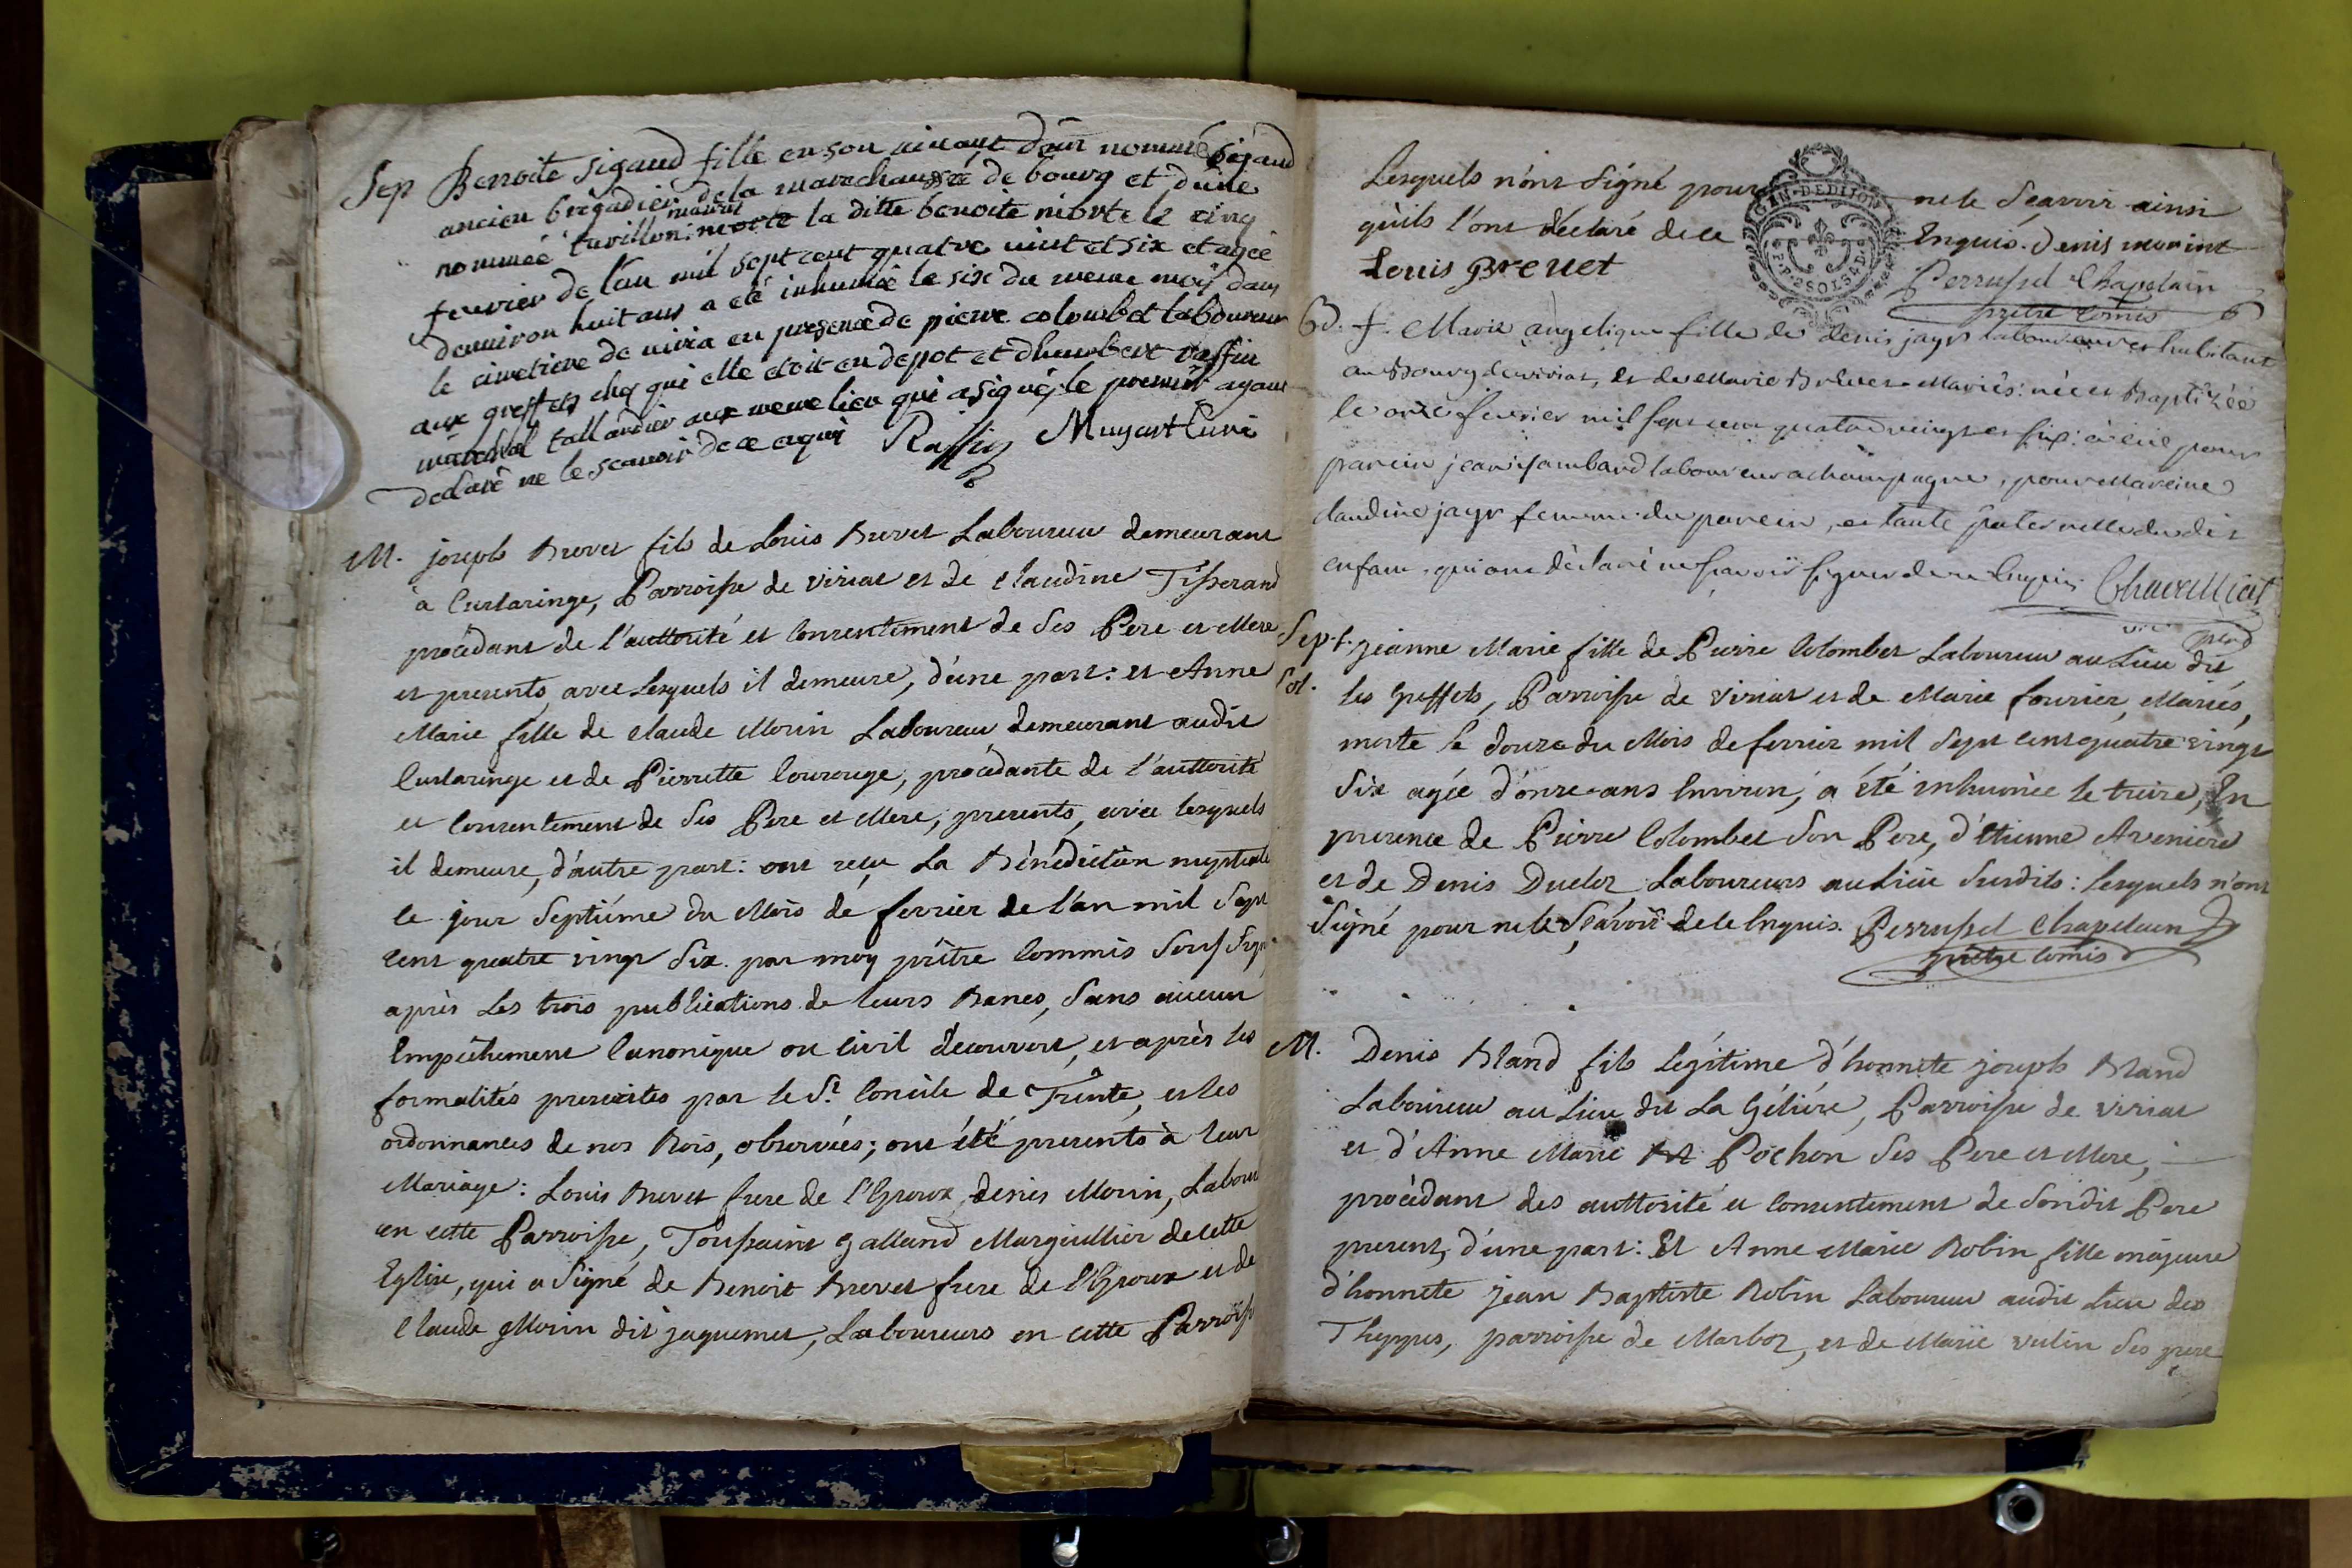 Sep Benoite Sigaud fille en son vivant d'un nommé Sigaud
ancien brigadier de la marechaussée de bourg et d'une
nommée tavillon mariés
morte la ditte benoite morte le cinq
fevrier de l'an mil sept cent quatre vint et six et agée
denviron huit ans a eté inhumée le six du meme mois dans
le cimetiere de viria en presence de pierre colombet laboureur
aux greffets chez qui elle etoit en depot et dhumbert raffin
marchal tallandier aux meme lieu qui a signé, le premier ayant
declaré ne le scavoir de ce enquis Raffin Muyart Curé
M. joseph Brevet fils de Louis Brevet Laboureur demeurant
à Curtaringe, Parroisse de viriat et de Claudine Tisserand
procédant de l'authorité et Consentement de Ses Pere et Mere
et presents, avec Lesquels il demeure, d'une part: et Anne
Marie fille de Claude Morin Laboureur demeurant audit
Curtaringe et de Pierrette Courouge, procédante de l'authorité
et Consentement de Ses Pere et Mere, presents, avec lesquels
il demeure, d'autre part: ont reçu La Bénédiction nuptiale
le jour Septiéme du Mois de fevrier de l'an mil Sept
cent quatre vingt Six. par moy prêtre Commis Souf Signé
après Les trois publications de leurs Bancs, Sans aucun
Empêchement Canonique ou Civil decouvert, et après les
formalités prescrites par le St. Concile de Trente, et les
ordonnances de nos Rois, observées; ont été presents à leur
Mariage: Louis Brevet frere de l'Epoux, denis Morin, Labour
en cette Parroisse, Toussaint Galland Marguillier de cette
Eglise, qui a Signé de Benoit Brevet frere de l'Epoux et de
Claude Morin dit jaquemet, Laboureurs en cette Parroiss
Lesquels n'ont Signé pour ne le Sçavoir ainsi
qu'ils l'ont déclaré de ce Enquis. Denis morint
GEN. DE DIJON
SOLS 4 D
Louis Brevet
Perrussel Chapelain
prêtre Comis
Bd. f. Marie angelique fille de denis jayr laboureur et habitant
au Bourg de viriat, et de Marie Brevet Mariés: née et Baptizée
le onze fevrier mil sept cent quatre vingt et six: a eu pour
parein jean jambard laboureur a champagne, pour Mareine
claudine jayr femme du parein, et tante paternelle du dit
enfant. qui ont déclaré ne sçavoir signer de ce Enquis.
Sep. f. jeanne Marie fille de Pierre Colombet Laboureur au Lieu dit
les Greffets, Parroisse de Viriat et de Marie fourier, Mariés,
morte le douze du Mois de fevrier mil Sept cent quatre vingt
Six agée d'onze ans Environ, a été inhumée le treize, En
presence de Pierre Colombet Son Pere, d'Etienne Aveniere
et de Denis Duclos Laboureurs au Lieu Susdits: lesquels n'ont
Signé pour ne le Sçavoir de ce Enquis. Perrussel Chapelain
prêtre Comis
M. Denis Bland fils Légitime d'honnete joseph Bland
Laboureur au Lieu dit La Géliére, Parroisse de Viriat
et d'Anne Marie Pochon Ses Pere et Mere,
procédant des authorité et Consentement de Sondit Pere
present, d'une part: Et Anne Marie Robin fille majeure
d'honnete jean Baptiste Robin Laboureur audit Lieu des
Theppes, parroisse de Marboz, et de Marie vulin Ses pere